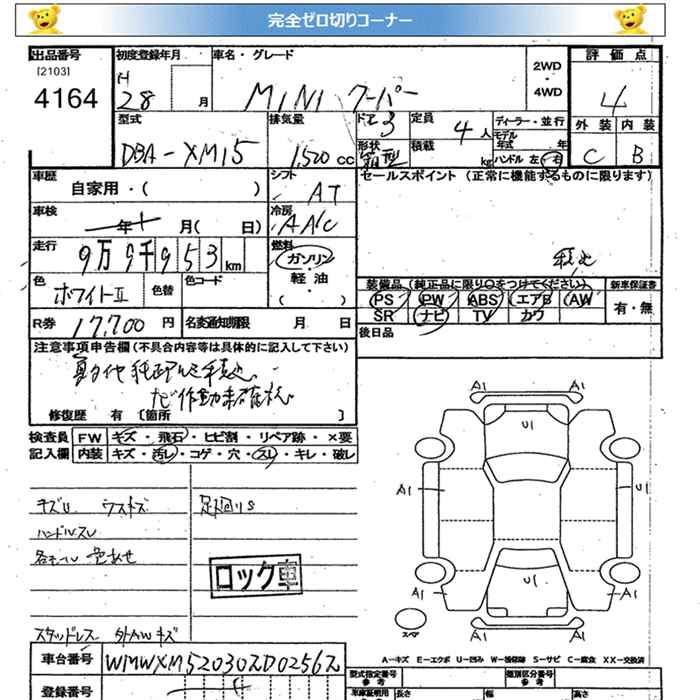 完全ゼロ切りコーナー
出品番号 初度登録年月 車名・グレード 2WD・4WD 評価点
[2103]
4164 H28 月 MINI クーパー 4
型式 排気量 ドア 3 定員 4人 ディーラー・並行 外装 内装
モデル年式 年
DBA-XM15 1,500cc 形状 箱型 積載 kg ハンドル 左・右 C B
車歴 自家用・( ) シフト AT セールスポイント (正常に機能するものに限ります)
車検 年 月( 日) 冷房 A/C
走行 9万9千953km 燃料 ガソリン・軽油・( )
積込
色 ホワイトII 色替 色コード
装備品(純正品に限り○をつけてください) 新車保証書
PS PW ABS エアB AW 有・無
SR ナビ TV カワ
R券 17,700円 名変通知期限 月 日
後日品
注意事項申告欄(不具合内容等は具体的に記入して下さい)
純正アルミ積込
ナビ作動未確認
修復歴 有 [箇所 ]
検査員 FW キズ・飛石・ヒビ割・リペア跡・×要
記入欄 内装 キズ・汚レ・コゲ・穴・スレ・キレ・破レ
キズU ウスキズ 足廻りS
ハンドルスレ
各モール 色あせ
ロック車
スタッドレス 外AWキズ
A1 A1
U1
A1 U1
U1
A1 A1
A1 A1
スペア
A-キズ E-エクボ U-凹み W-補修跡 S-サビ C-腐食 XX-交換済
車台番号 WMWXM520302D02562
型式指定番号 参考 類別区分番号 参考
登録番号
車庫証明用 長さ 幅 高さ